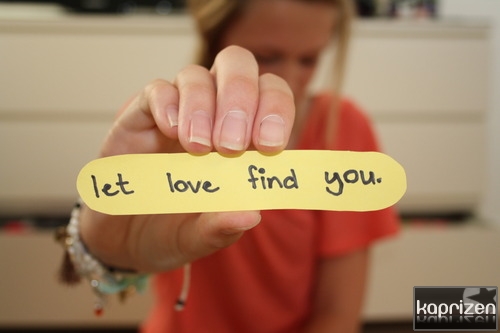 let love find you.
kaprizen